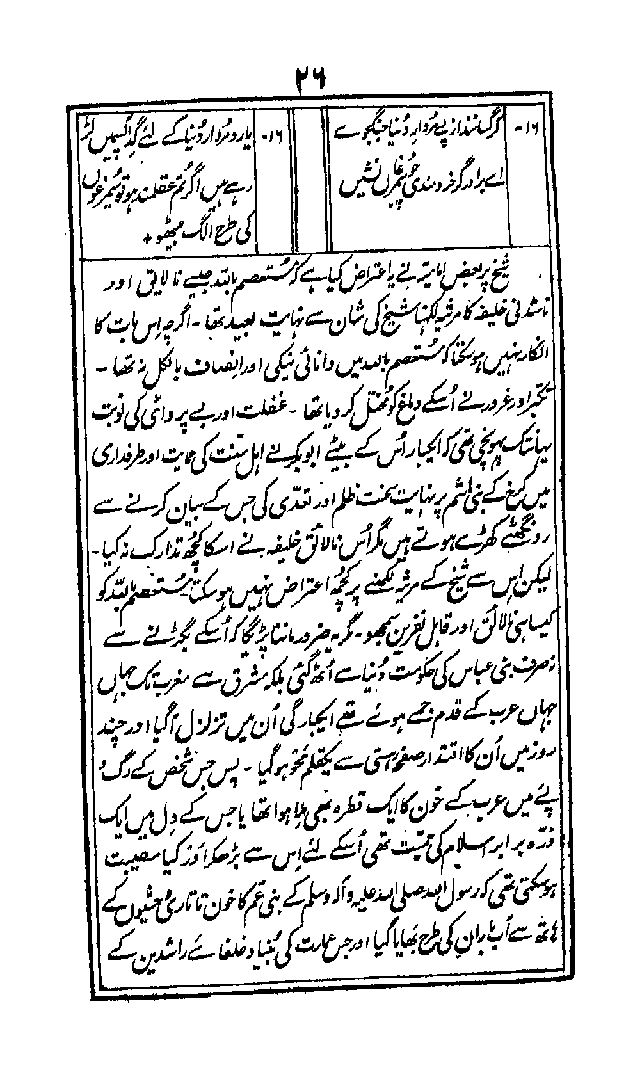 ۲۶
۱۶- کرگسانند از پے مردارِ دُنیا جنگجوے
اے برادر گر خردمندی چو سیمرغاں نشیں
۱۶- یارو مُردار دُنیا کے لئے گِدّ آپسمیں لڑ
رہے ہیں اگر تم عقلمند ہو تو سیمرغوں
کی طرح الگ بیٹھو +
شیخ پر بعض امامیہ نے یہ اعتراض کیا ہے کہ مُستعصم باللہ جیسے نالایق اور
ناشدنی خلیفہ کا مرثیہ لکھنا شیخ کی شان سے نہایت بعید تھا - اگرچہ اِس بات کا
انکار نہیں ہو سکتا کہ مُستعصم باللہ میں دانائی نیکی اور انصاف بالکل نہ تھا -
تکبّر اور غرور نے اُسکے دماغ کو مختل کر دیا تھا - غفلت اور بے پروائی کی نوبت
یہانتک پہونچی تھی کہ ایکبار اُس کے بیٹے ابوبکر نے اہل سنت کی حمایت اور طرفداری
میں کرخ کے بنی ہاشم پر نہایت سخت ظلم اور تعدّی کی جس کے بیان کرنے سے
رونگٹے کھڑے ہوتے ہیں مگر اُس نالائق خلیفہ نے اسکا کچھ تدارک نہ کیا -
لیکن اِس سے شیخ کے مرثیہ لکھنے پر کچھ اعتراض نہیں ہو سکتا مُستعصم باللہ کو
کیسا ہی نالائق اور قابل نفرین سمجھو - مگر یہ ضرور ماننا پڑیگا کہ اُسکے بگڑنے سے
نہ صرف بنی عباس کی حکومت دُنیا سے اُٹھ گئی بلکہ مشرق سے مغرب تک جہاں
جہاں عرب کے قدم جمے ہوئے تھے ایکبارگی اُن میں تزلزل آگیا اور چند
روز میں اُن کا اقتدار صفحہ ہستی سے یکقلم محو ہو گیا - پس جس شخص کے رگ و
پے میں عرب کے خون کا ایک قطرہ بھی ملا ہوا تھا یا جس کے دِل میں ایک
ذرّہ برابر اسلام کی حمیّت تھی اُسکے لئے اِس سے بڑھکر اَور کیا مصیبت
ہو سکتی تھی کہ رسول اللہ صلی اللہ علیہ و آلہ وسلم کے بنی عم کا خون تاتاری وحشیوں کے
ہاتھ سے آب باران کی طرح بہایا گیا اور جس عمارت کی بُنیاد خلفائے راشدین کے